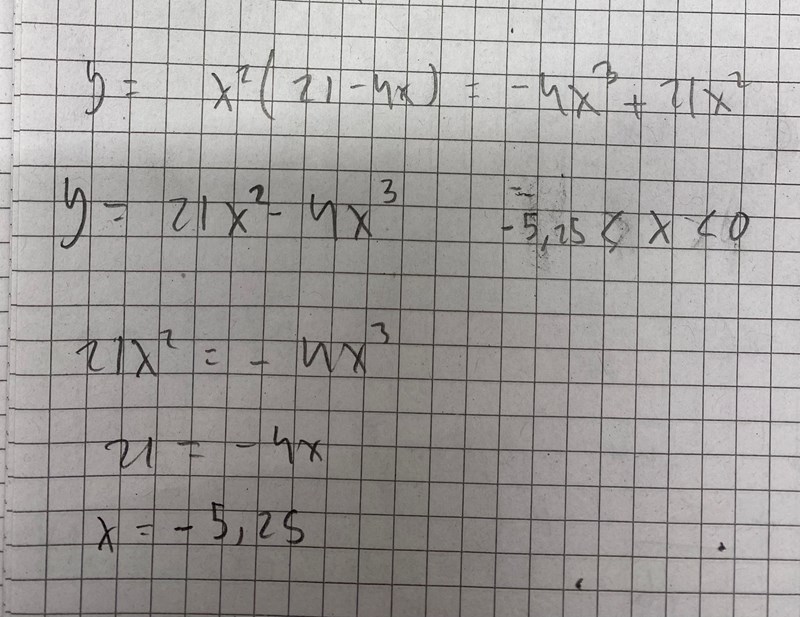 y = x²(21 - 4x) = -4x³ + 21x²
y = 21x² - 4x³ -5,25 < x < 0
21x² = - 4x³
21 = - 4x
x = - 5,25